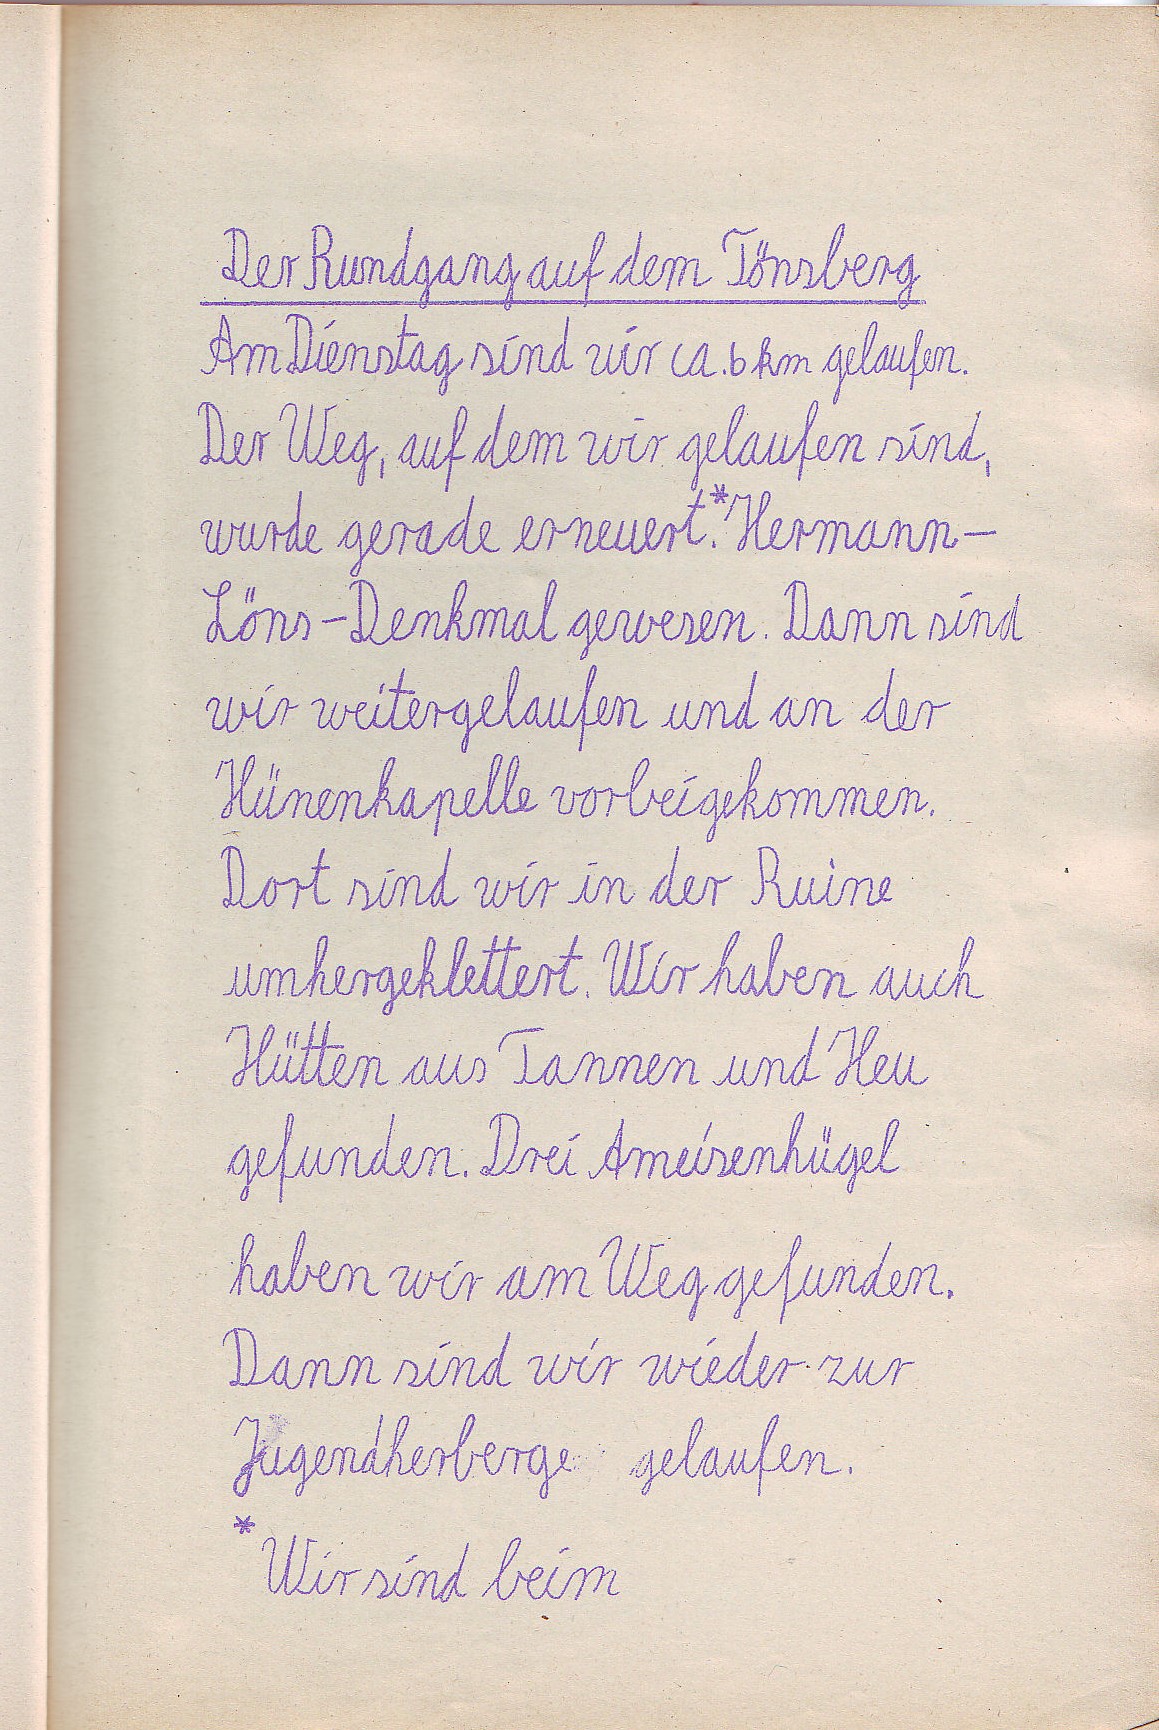 Der Rundgang auf dem Tönsberg
Am Dienstag sind wir ca. 6 km gelaufen.
Der Weg, auf dem wir gelaufen sind,
wurde gerade erneuert.* Hermann-
Löns-Denkmal gewesen. Dann sind
wir weitergelaufen und an der
Hünenkapelle vorbeigekommen.
Dort sind wir in der Ruine
umhergeklettert. Wir haben auch
Hütten aus Tannen und Heu
gefunden. Drei Ameisenhügel
haben wir am Weg gefunden.
Dann sind wir wieder zur
Jugendherberge gelaufen.
* Wir sind beim